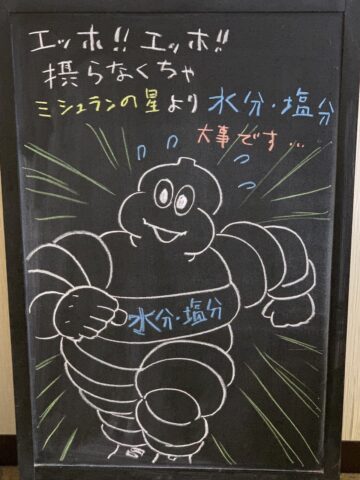 エッホ!! エッホ!!
摂らなくちゃ
ミシュランの星より 水分・塩分
大事です...
水分・塩分